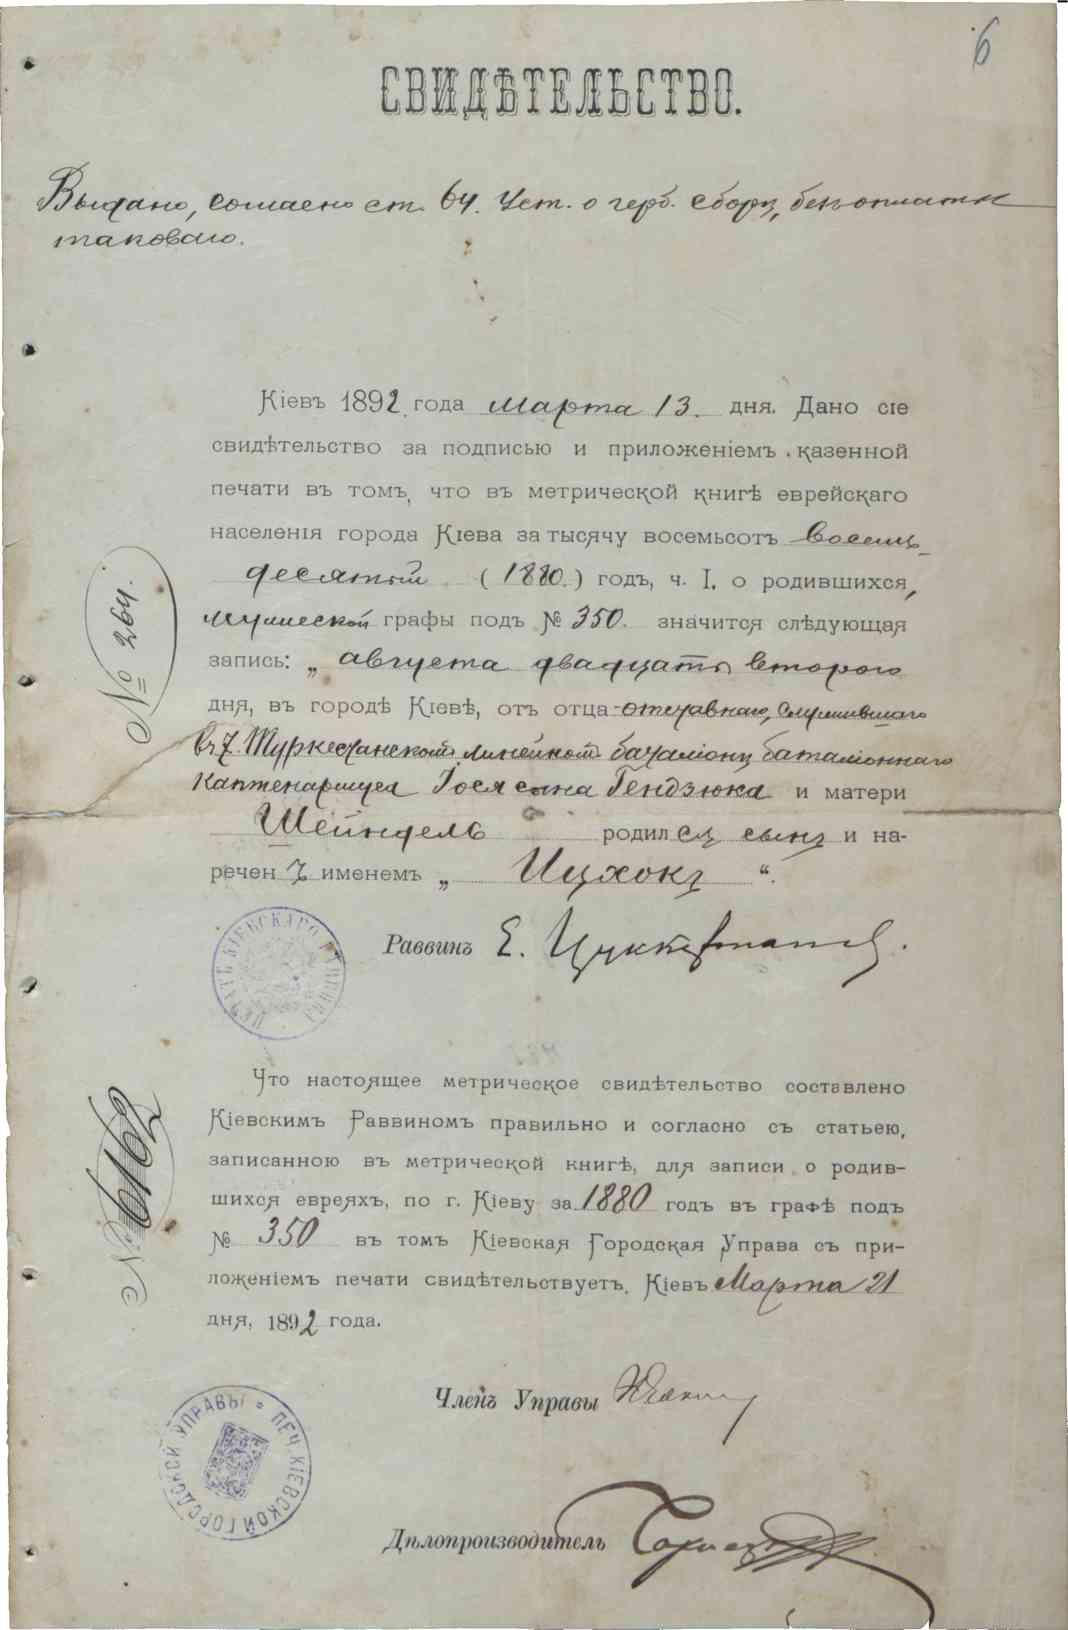 6
СВИДѢТЕЛЬСТВО.
Выдано, согласно ст. 64. Уст. о герб. сборѣ, безоплатно
таковаго.
Кіевъ 1892 года Марта 13. дня. Дано сіе
свидѣтельство за подписью и приложеніемъ казенной
печати въ томъ, что въ метрической книгѣ еврейскаго
населенія города Кіева за тысячу восемьсотъ восемь-
десятый (1880.) годъ, ч. I. о родившихся,
мужеской графы подъ № 350. значится слѣдующая
запись: „ августа двадцать втораго
дня, въ городѣ Кіевѣ, отъ отца отставнаго, служившаго
въ 7. Туркестанскомъ линейномъ баталіонѣ баталіоннаго
Каптенармуса Іося сына Гендзюка и матери
Шейндель родился сынъ и на-
реченъ именемъ „ Ицхокъ “.
№ 264.
Раввинъ Е. Цуккерманъ.
ПЕЧАТЬ КІЕВСКАГО РАВВИНА
Что настоящее метрическое свидѣтельство составлено
Кіевскимъ Раввиномъ правильно и согласно съ статьею,
записанною въ метрической книгѣ, для записи о родив-
шихся евреяхъ, по г. Кіеву за 1880 годъ въ графѣ подъ
№ 350 въ томъ Кіевская Городская Управа съ при-
ложеніемъ печати свидѣтельствуетъ. Кіевъ Марта 21
дня, 1892 года.
№
Членъ Управы
ПЕЧ. КІЕВСКОЙ ГОРОДСКОЙ УПРАВЫ
Дѣлопроизводитель